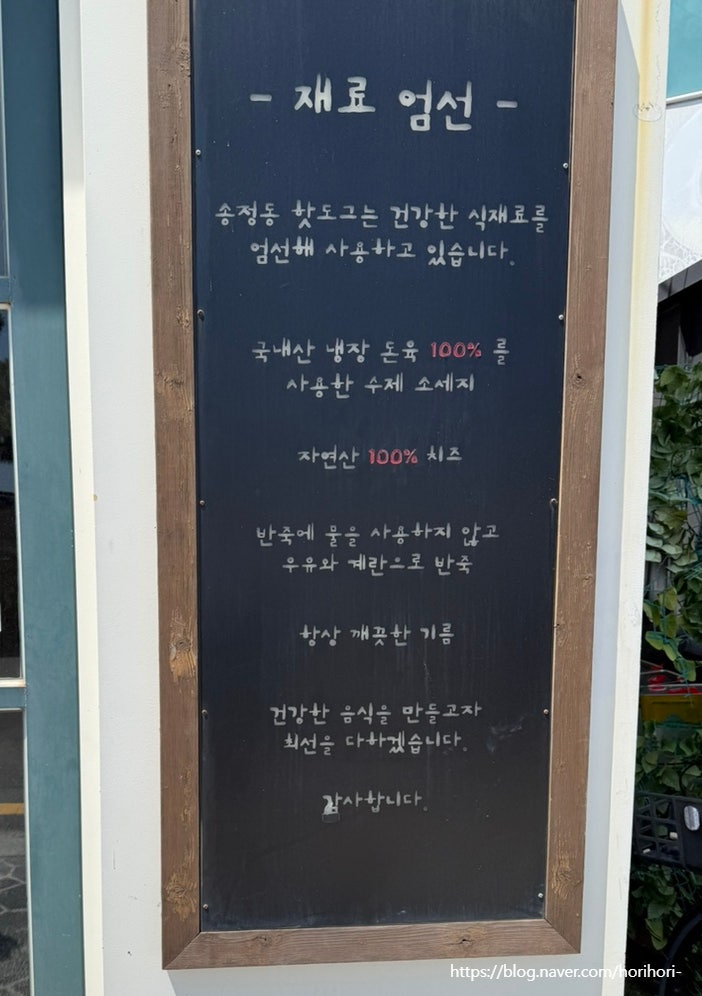 - 재료 엄선 -
송정동 핫도그는 건강한 식재료를
엄선해 사용하고 있습니다.
국내산 냉장 돈육 100% 를
사용한 수제 소세지
자연산 100% 치즈
반죽에 물을 사용하지 않고
우유와 계란으로 반죽
항상 깨끗한 기름
건강한 음식을 만들고자
최선을 다하겠습니다.
감사합니다.
https://blog.naver.com/horihori-